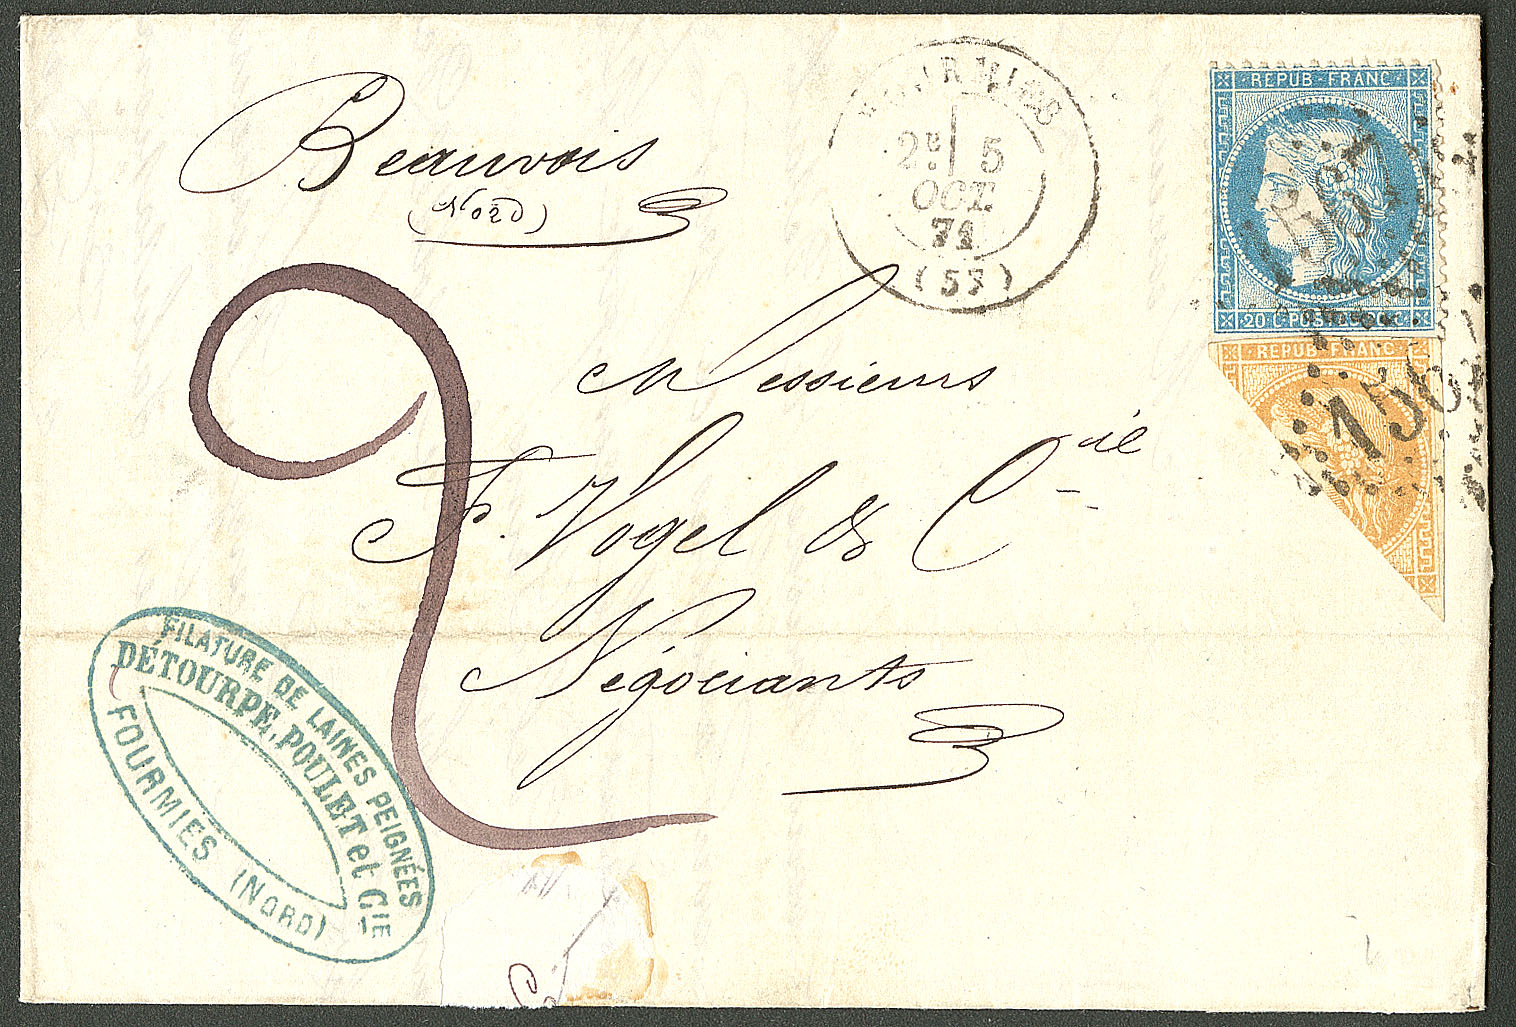 Beauvois
(Nord)
FOURMIES
2E 5
OCT.
71
(57)
REPUB·FRANC
20 C POSTES 20 C
REPUB·FRANC
1567
Messieurs
F. Vogel & Cie
Négociants
FILATURE DE LAINES PEIGNÉES
DÉTOURPE, POULET et CIE
FOURMIES (NORD)
2